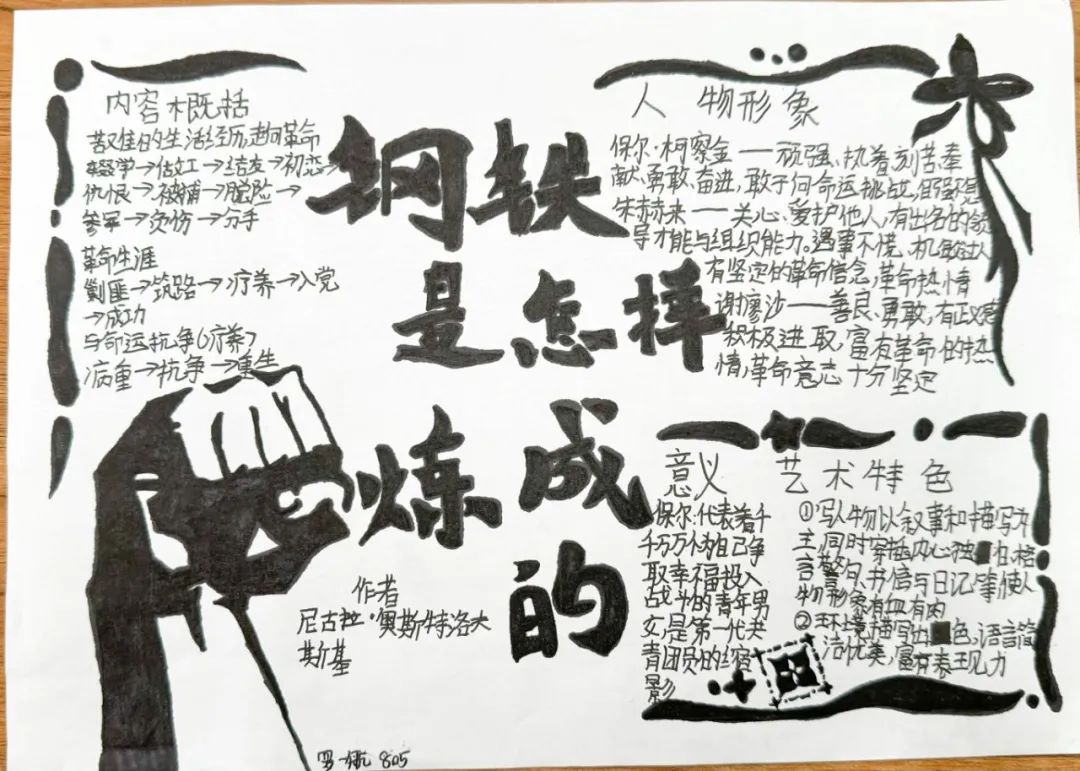 内容概括
苦难的生活经历,走向革命
辍学→做工→结友→初恋→
仇恨→被捕→脱险→
参军→负伤→分手
革命生涯
剿匪→筑路→疗养→入党
→成功
与命运抗争(疗养)
病重→抗争→重生
钢铁
是怎样
炼成
的
作者
尼古拉·奥斯特洛夫
斯基
人物形象
保尔·柯察金——顽强、执着刻苦奉
献、勇敢、奋进,敢于向命运挑战,自强不息
朱赫来——关心、爱护他人,有出名的领
导才能与组织能力。遇事不慌、机敏过人
有坚定的革命信念,革命热情
谢廖沙——善良、勇敢,有正义感
积极进取,富有革命的热
情,革命意志十分坚定
意义
保尔代表着千
千万万个为自己争
取幸福投入
战斗的青年男
女是第一代共
青团员的缩
影
艺术特色
①写人物以叙事和描写为
主,同时穿插内心独白,格
言警句、书信与日记等使人
物形象有血有肉
②环境描写出色,语言简
洁优美,富有表现力
805